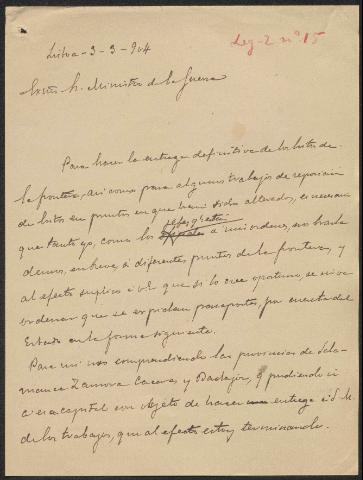 Lisboa - 3 - 3 - 904
Leg - 2 nº 15
Exmo Sr. Ministro de la Guerra
Para hacer la entrega definitiva de los hitos de
la frontera, asi como para algunos trabajos de reposicion
de hitos en puntos en que han sido alterados, es necesario
que tanto yo, como los a mis ordenes, nos trasla
demos, en breve, á diferentes puntos de la frontera, y
al efecto suplico á V.E. que si lo cree oportuno, se sirva
ordenar que se expidan pasaportes, por cuenta del
Estado en la forma siguiente.
Para mi uno comprendiendo las provincias de Sala-
manca Zamora Caceres y Badajoz, y pudiendo ir
á esa capital con objeto de hacer entrega á S. M.
de los trabajos, que al efecto estoy terminando.